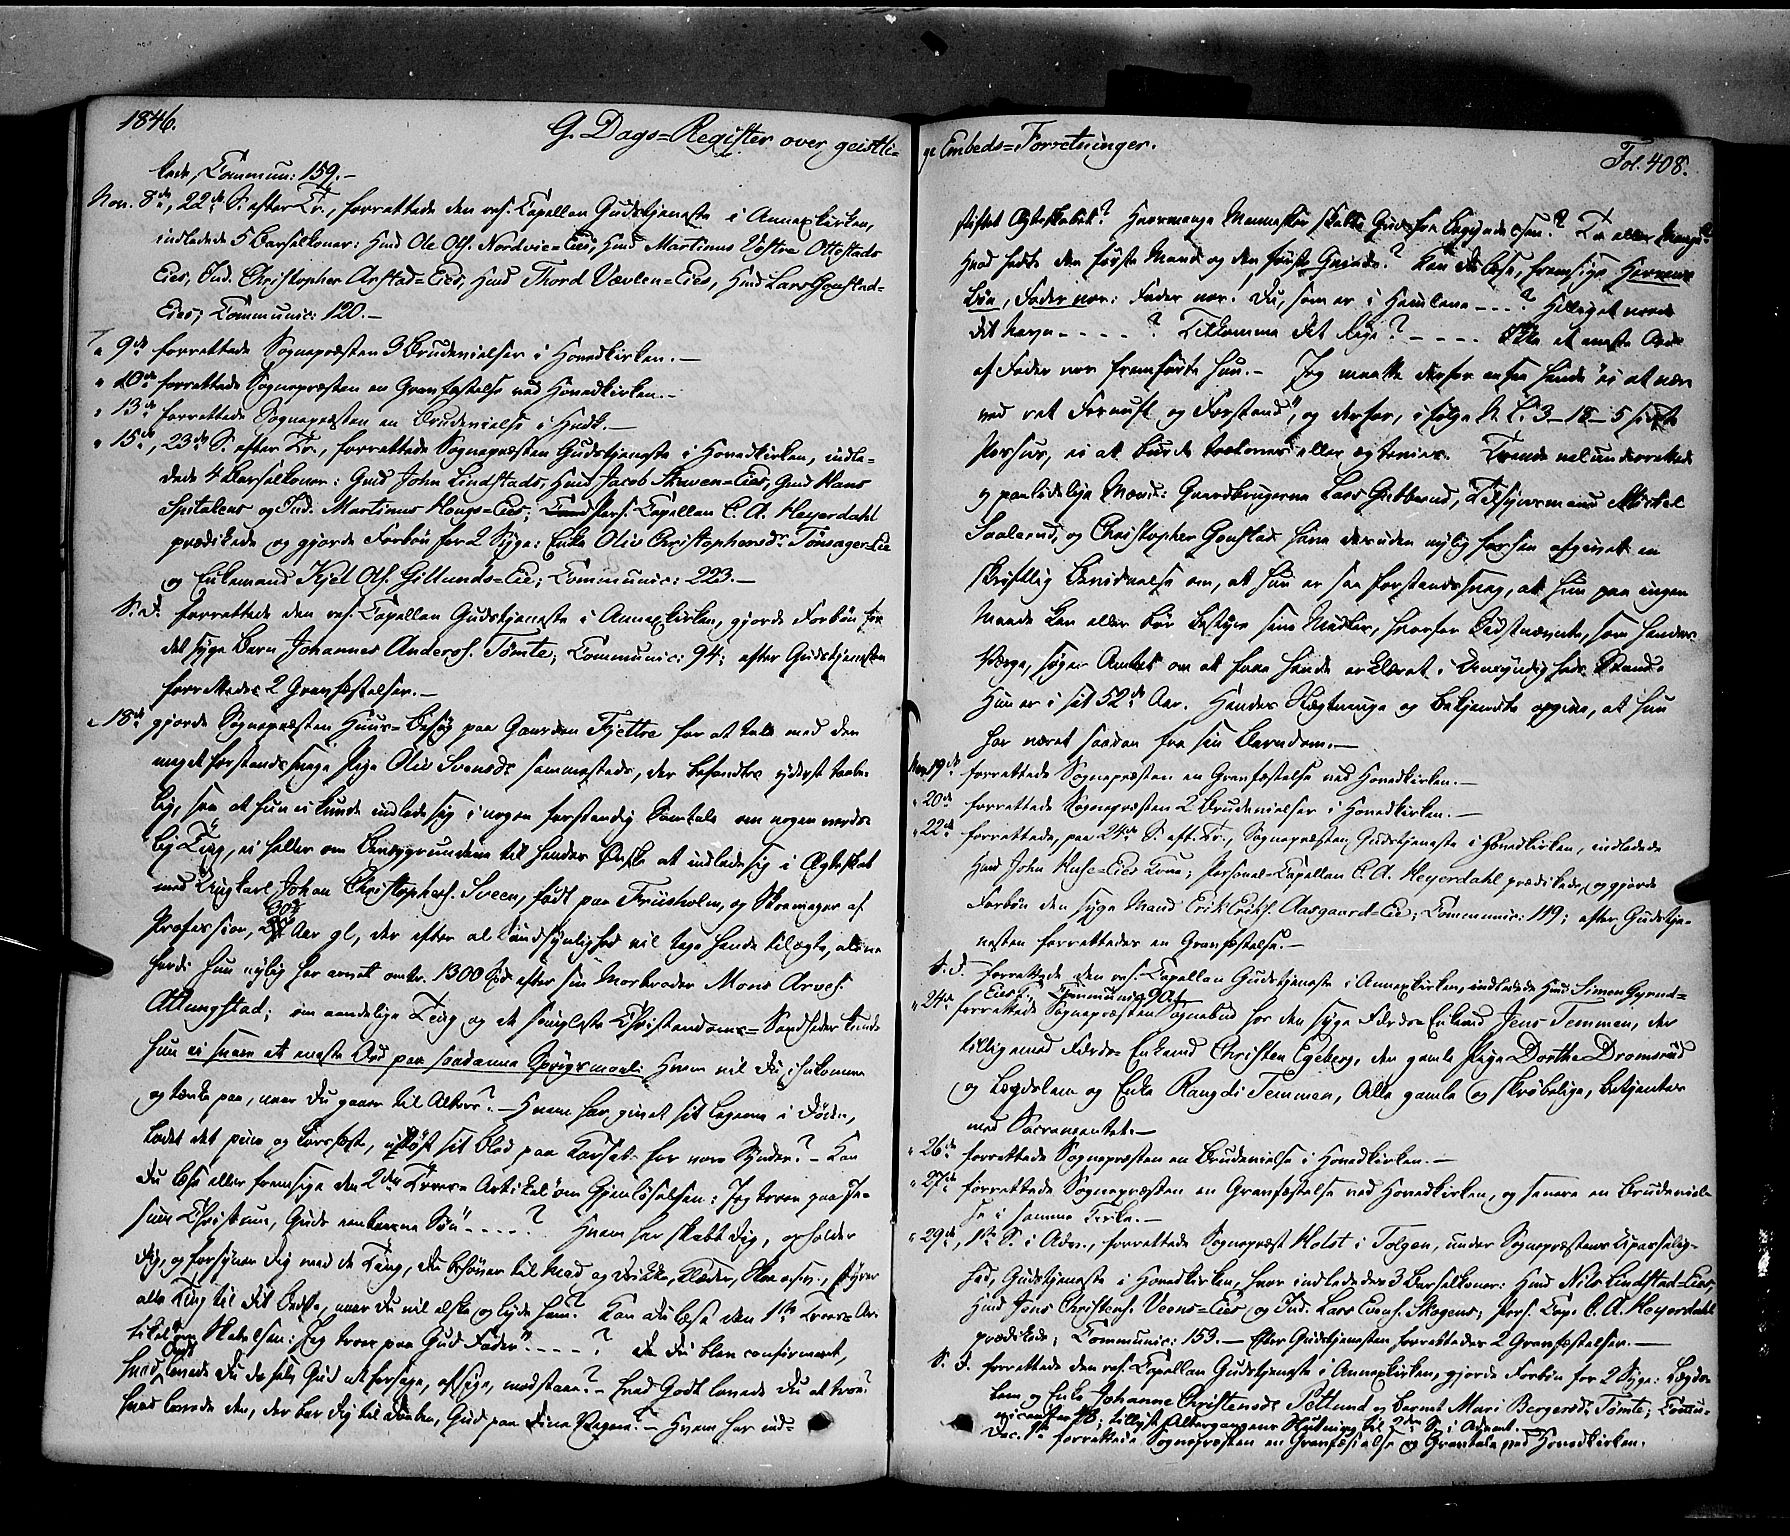 1846.
G. Dags=Register over geistli=
kede, Commun: 159.—
Nov. 8de, 22de S. efter Tr., forrettede den res. Capellan Gudstjeneste i Annexkirken,
indledede 5 Barselkoner: Hmd Ole Ols. Nordvie=Eies, Hmd Martinus Vestre Ottestads
Eies, Ind. Christopher Arstad=Eies, Hmd Thord Vævlen=Eies, Hmd Lars Gonstad=
Eies; Communic: 120.—
" 9de forrettede Sognepræsten 3 Brudevielser i Hovedkirken.—
" 10de forrettede Sognepræsten en Gravfæstelse ved Hovedkirken.—
" 13de forrettede Sognepræsten en Brudevielse i Hvdk.—
" 15de, 23de S. efter Tr., forrettede Sognepræsten Gudstjeneste i Hovedkirken, indle=
dede 4 Barselkoner: Gmd John Lindstads, Hmd Jacob Skaven=Eies, Gmd Hans
Spitalens og Ind. Martinus Hougs=Eies; Pers. Capellan C. A. Heyerdahl
prædikede og gjorde Forbøn for 2 Syge: Enke Oliv Christophersdr Tønsager=Eie
og Enkemand Kjel Ols. Gillunds=Eie; Communic: 223.—
S. D. forrettede den res. Capellan Gudstjeneste i Annexkirken, gjorde Forbøn for
det syge Barn Johannes Anders. Tømte; Communic: 94; efter Gudstjenesten
forrettedes 2 Gravfæstelser.—
" 18de gjorde Sognepræsten Huus=Besøg paa Gaarden Fjettre for at tale med den
meget forstandssvage Pige Oliv Svensdr sammesteds, der befandtes yderst taabe=
lig, saa at hun ei kunde indlade sig i nogen forstandig Samtale om nogen verds=
lig Ting, ei heller om Bevæggrundene til hendes Ønske at indlade sig i Ægteskab
med Ungkarl Johan Christophers. Sveen, født paa Friisholm, og Skomager af
Profession, Aar gl, der efter al Sandsynlighed vil tage hende til ægte, alene
fordi hun nylig har arvet omtr. 1300 Spd efter sin Morbroder Mons Arves.
Attungstad; om aandelige Ting og de simpleste Christendoms=Sandheder kunde
hun ei svare et eneste Ord paa saadanne Spørgsmaal: Hvem vil Du ihukomme
og tænke paa, naar Du gaaer til Alters?— Hvem har givet sit Legeme i Døden,
ladet det pine og korsfæste, udøst sit Blod paa Korset for vore Synder?— Kan
Du læse eller fremsige den 2den Troes=Artikel om Gjenløselsen: Jeg troer paa Je=
sum Christum, Guds eenbaarne Søn----? Hvem har skabt dig, opholder
dig, og forsyner dig med de Ting, du behøver til Mad og Drikke, Klæder, Skoe osv., styrer
alle Ting til dit Bedste, naar du vil elske og lyde ham? Kan du læse den 1ste Troes=Ar=
tikel om Skabelsen: Jeg troer paa Gud Fader----? Da Du blev confirmeret,
hvad lovede Du da selv Gud at forsage, afsige, modstaae?— Hvad Godt lovede Du at troe?
Hvad lovede den, der bar dig til Daaben, Gud paa Dine Vegne?— Hvem har ind=
ge Embeds=Forretninger.
Fol. 408.
stiftet Ægteskabet? Hvormange Mennesker skabte Gud fra Begyndelsen? To eller mange?
Hvad hedte den første Mand og den første Qvinde? Kan du læse, fremsige Herrens
Bøn, Fader vor: Fader vor! Du, som er i Himlene---? Helliget vorde
dit Navn----? Tilkomme dit Rige?---- Ikke et eneste Ord
af Fader vor fremførte hun.— Jeg maatte derfor ansee hende "ei at være
ved ret Fornuft og Forstand", og derfor, ifølge N. L. 3-18-5 sidste
Passus, ei at burde troloves eller ægtevies. Trende vel underrettede
og paalidelige Mænd: Gaardbrugerne Lars Gubberud, Tilsynsmand Mikkel
Saalerud, og Christopher Gonstad have desuden nylig forhen afgivet en
skriftlig Bevidnelse om, at hun er saa forstandssvag, at hun paa ingen
Maade kan eller bør bestyre sine Midler, hvorfor Sidstnævnte, som hendes
Værge, søger Amtet om at faae hende erklæret i Umyndigheds Stand.
Hun er i sit 52de Aar. Hendes Slægtninge og Bekjendte opgive, at hun
har været saadan fra sin Barndom.—
Nov. 19de forrettede Sognepræsten en Gravfæstelse ved Hovedkirken.—
" 20de forrettede Sognepræsten 2 Brudevielser i Hovedkirken.—
" 22de forrettede, paa 24de S. eft. Tr., Sognepræsten Gudstjeneste i Hovedkirken, indledede
Hmd John Huse=Eies Kone; Personel=Capellan C. A. Heyerdahl prædikede, og gjorde
Forbøn den syge Mand Erik Eriks. Aasgaard=Eie; Communic: 119; efter Gudstje=
nesten forrettedes en Gravfæstelse.—
S. D. forrettede den res. Capellan Gudstjeneste i Annexkirken, indledede Hmd Simen Gyrud=
Eies; Communic: 90.
" 24de forrettede Sognepræsten Sognebud hos den syge Førdr=Enkmd Jens Temmen, der
tilligemed Førdr=Enkemd Christen Egeberg, den gamle Pige Dorthe Dromsrud
og Lægdslem og Enke Rangdi Temmen, Alle gamle og skrøbelige, betjentes
med Sacramentet.—
" 26de forrettede Sognepræsten en Brudevielse i Hovedkirken.—
" 27de forrettede Sognepræsten en Gravfæstelse ved Hovedkirken, og senere en Brudeviel=
se i samme Kirke.—
" 29de, 1ste S. i Adv., forrettede Sognepræst Holst i Tolgen, under Sognepræstens Upasselig=
hed, Gudstjeneste i Hovedkirken, hvor indlededes 3 Barselkoner: Hmd Nils Lindstad=Eies,
Hmd Jens Christens. Veens=Eies, og Ind. Lars Evens. Skogens; Pers. Cap. C. A. Heyerdahl
prædikede; Communic: 153.— Efter Gudstjenesten forrettedes 2 Gravfæstelser.—
S. D. forrettede den res. Capellan Gudstjeneste i Annexkirken, gjorde Forbøn for 2 Syge: Lægds=
lem og Enke Johanne Christensdr Petlund og Barnet Mari Bergersdr Tømte; Commu=
nicanter; tillyst Altergangens Slutning til 2den S. i Advent.
Dec. 1ste forrettede Sognepræsten en Gravfæstelse og Gravtale ved Hovedkirken.